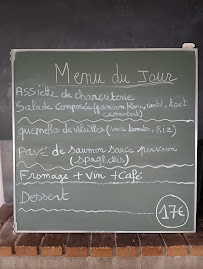 Menu du Jour
Assiette de charcuterie
Salade composée (jambon blanc, comté, tout
camembert)
quenelles de volailles (sauce tomates, Riz)
Pavé de saumon sauce poisson
(spaghettis)
Fromage + Vin + Café
Dessert
17€